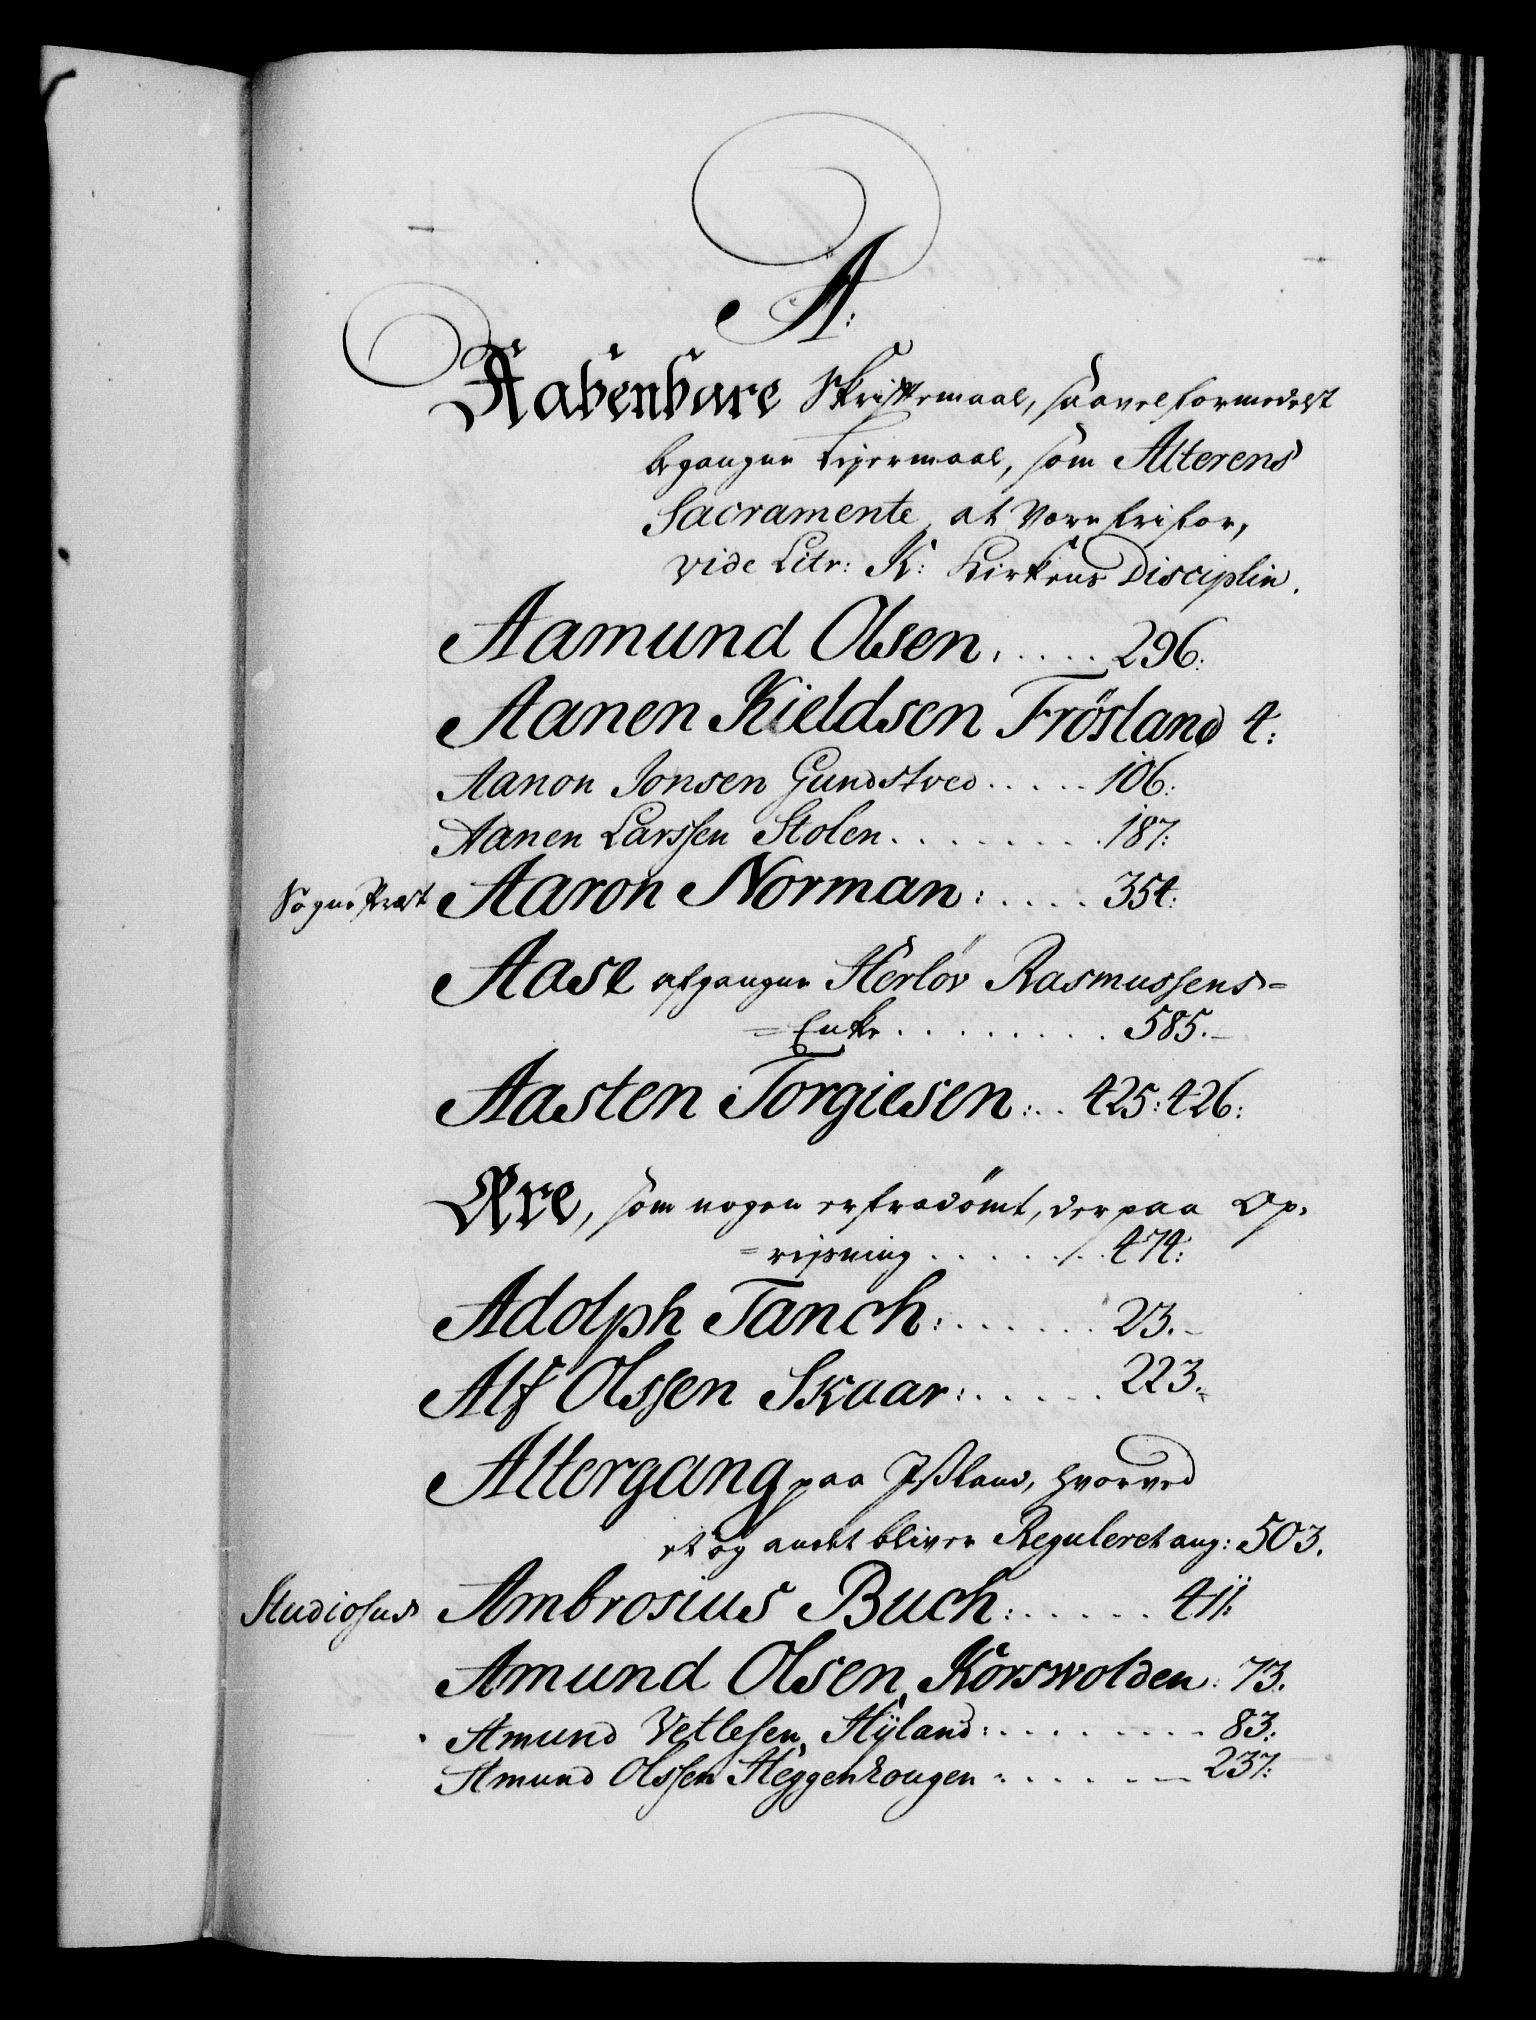 A:
Aabenbare Skriftemaal, saavel formedelst
begangne Leyermaal, som Alterens
Sacramente, at være fri for,
vide Litr: K: Kirkens Disciplin.
Aamund Olsen, . . . . 296:
Aanen Kieldsen Frösland 4:
Aanon Jonsen Gundstved . . . . . 106:
Aanen Larssen Stolen . . . . . . . . 187:
Sogne Præst Aaron Norman: . . . . 354:
Aase afgangne Herlöv Rasmussens=
=Enke . . . . . . . . 585.
Aasten Torgiesen: . . 425: 426:
Ære, som nogen er fradömt, derpaa Op=
=reisning . . . . . . . 474:
Adolph Tanch: . . . . . . 23.
Alf Olssen Skaar: . . . . . 223.
Altergang paa Ißland, hvorved
et og andet bliver Reguleret ang: 503.
Studiosus Ambrosius Buch: . . . . . 411:
Amund Olsen Korswolden: 73.
Amund Vetlesen Hÿland: . . . . . . . . 83:
Amund Olssen Heggenhougen . . . . . . 237: